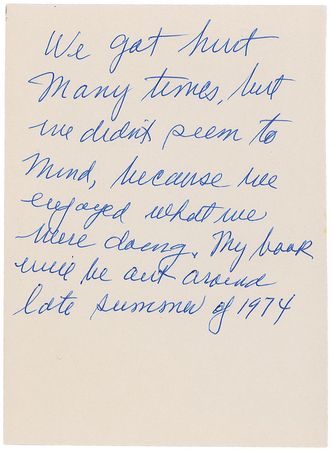 We got hurt
Many times, but
we didn't seem to
mind, because we
enjoyed what we
were doing. My book
will be out around
late summer of 1974